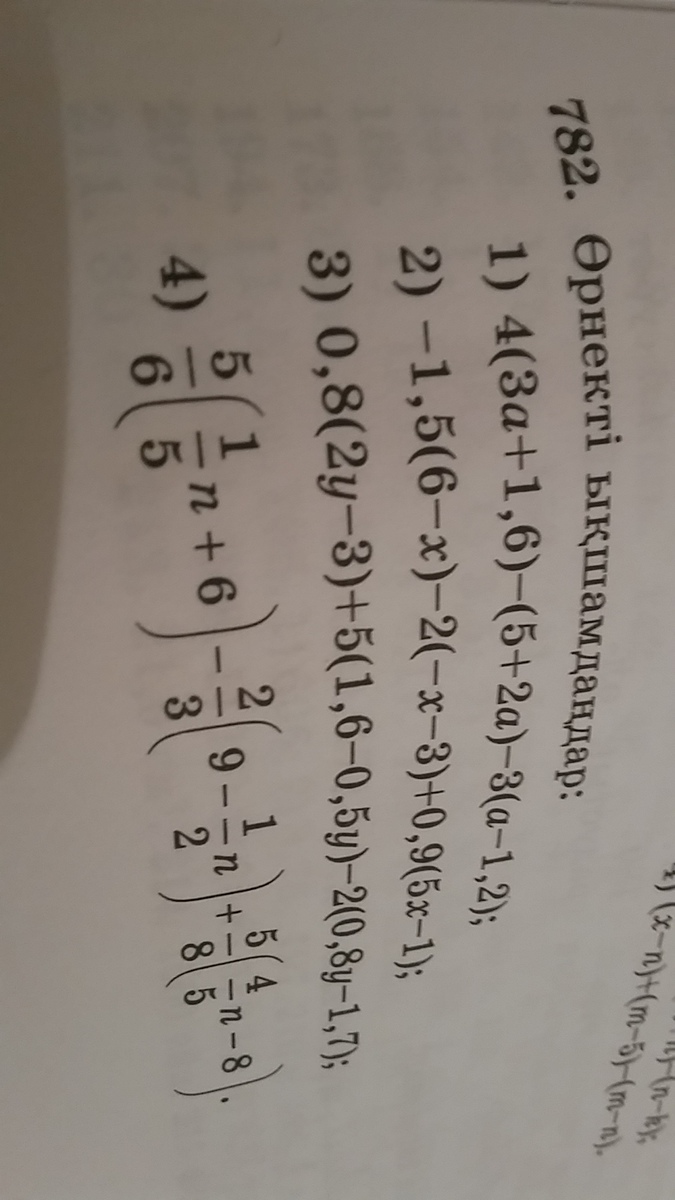 4) (x−n)+(m−5)−(m−n).
782. Өрнекті ықшамдаңдар:
1) 4(3a+1,6)−(5+2a)−3(a−1,2);
2) −1,5(6−x)−2(−x−3)+0,9(5x−1);
3) 0,8(2y−3)+5(1,6−0,5y)−2(0,8y−1,7);
4) 5/6(1/5 n + 6) − 2/3(9 − 1/2 n) + 5/8(4/5 n − 8).